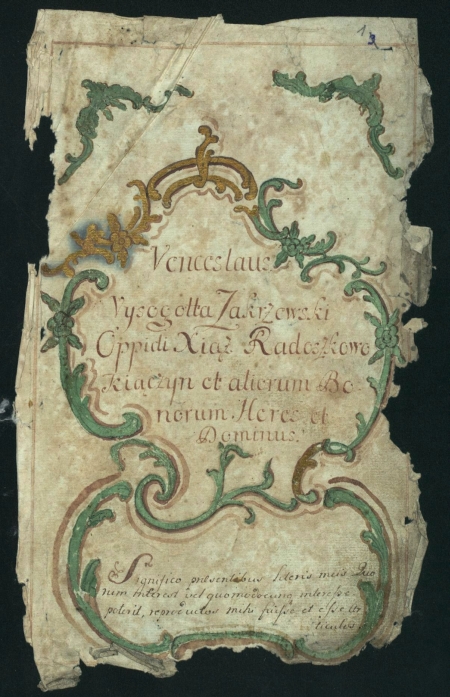 13
Venceslaus
Vyssogotta Zakrzewski
Oppidi Xiąż Radoszkowo
Kiączyn et aliorum Bo-
norum Heres et
Dominus.
Significo præsentibus literis meis Quo
rum interest vel quomodocunq interesse
poterit, reproductos mihi fuisse et esse